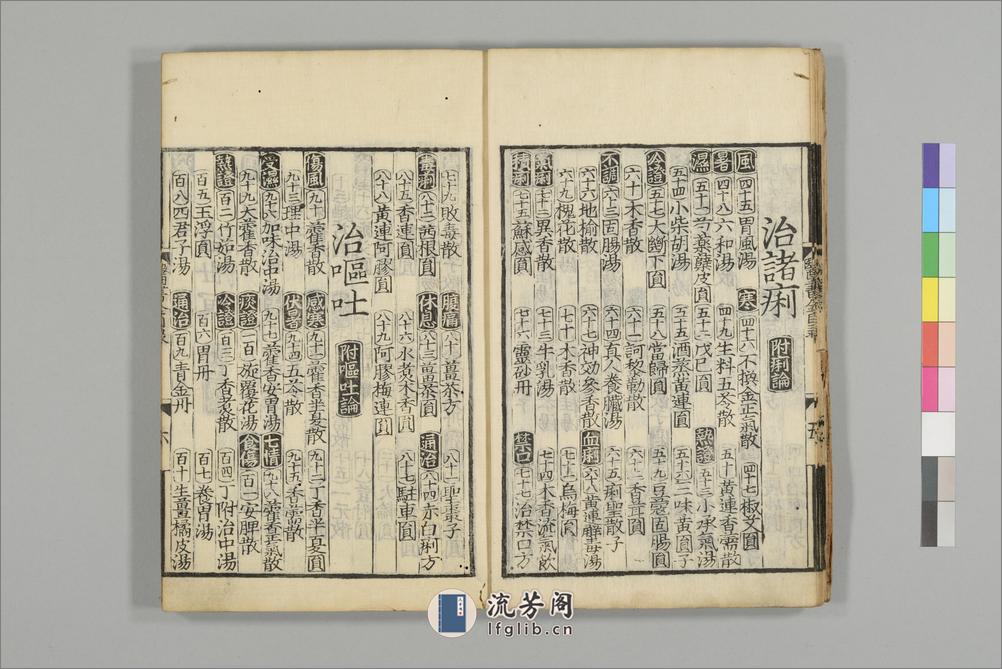 治諸痢 附痢論
風 四十五胃風湯 寒 四十六不換金正氣散 四十七椒艾圓
暑 四十八六和湯 四十九生料五苓散 五十黃連香薷散
濕 五十一芍藥蘗皮圓 五十二戊己圓 熱證 五十三小承氣湯
五十四小柴胡湯 五十五酒蒸黃連圓 五十六三味黃圓子
冷證 五十七大下圓 五十八當歸圓 五十九豆蔻固腸圓
六十木香散 六十一訶黎勒散 六十二香茸圓
不調 六十三固腸湯 六十四真人養臟湯 六十五痢聖散子
六十六地榆散 六十七神効參香散 血痢 六十八黃連湯
六十九槐花散 七十木香散 七十一烏梅圓
氣痢 七十二異香散 七十三牛乳湯 七十四木香流氣飲
積痢 七十五蘇感圓 七十六靈砂丹 禁口 七十七治禁口方
七十九敗毒散 腹痛 八十薑茶方 八十一聖棗子
八十二茜根圓 休息 八十三薑茶圓 通治 八十四赤白痢方
八十五香連圓 八十六水煮木香圓 八十七駐車圓
八十八黃連阿膠圓 八十九阿膠梅連圓
治嘔吐 附嘔吐論
傷風 九十藿香散 感寒 九十一藿香半夏散 九十二丁香半夏圓
九十三理中湯 伏暑 九十四五苓散 九十五香薷散
受濕 九十六加味治中湯 九十七藿香安胃湯 七情 九十八藿香正氣散
九十九大藿香散 痰證 一百旋覆花湯 食傷 百一安脾散
熱證 百二竹茹湯 冷證 百三丁香煮散 百四丁附治中湯
百五玉浮圓 百六胃丹 百七養胃湯
百八四君子湯 通治 百九青金丹 百十生薑橘皮湯
流芳阁
lfglib.cn